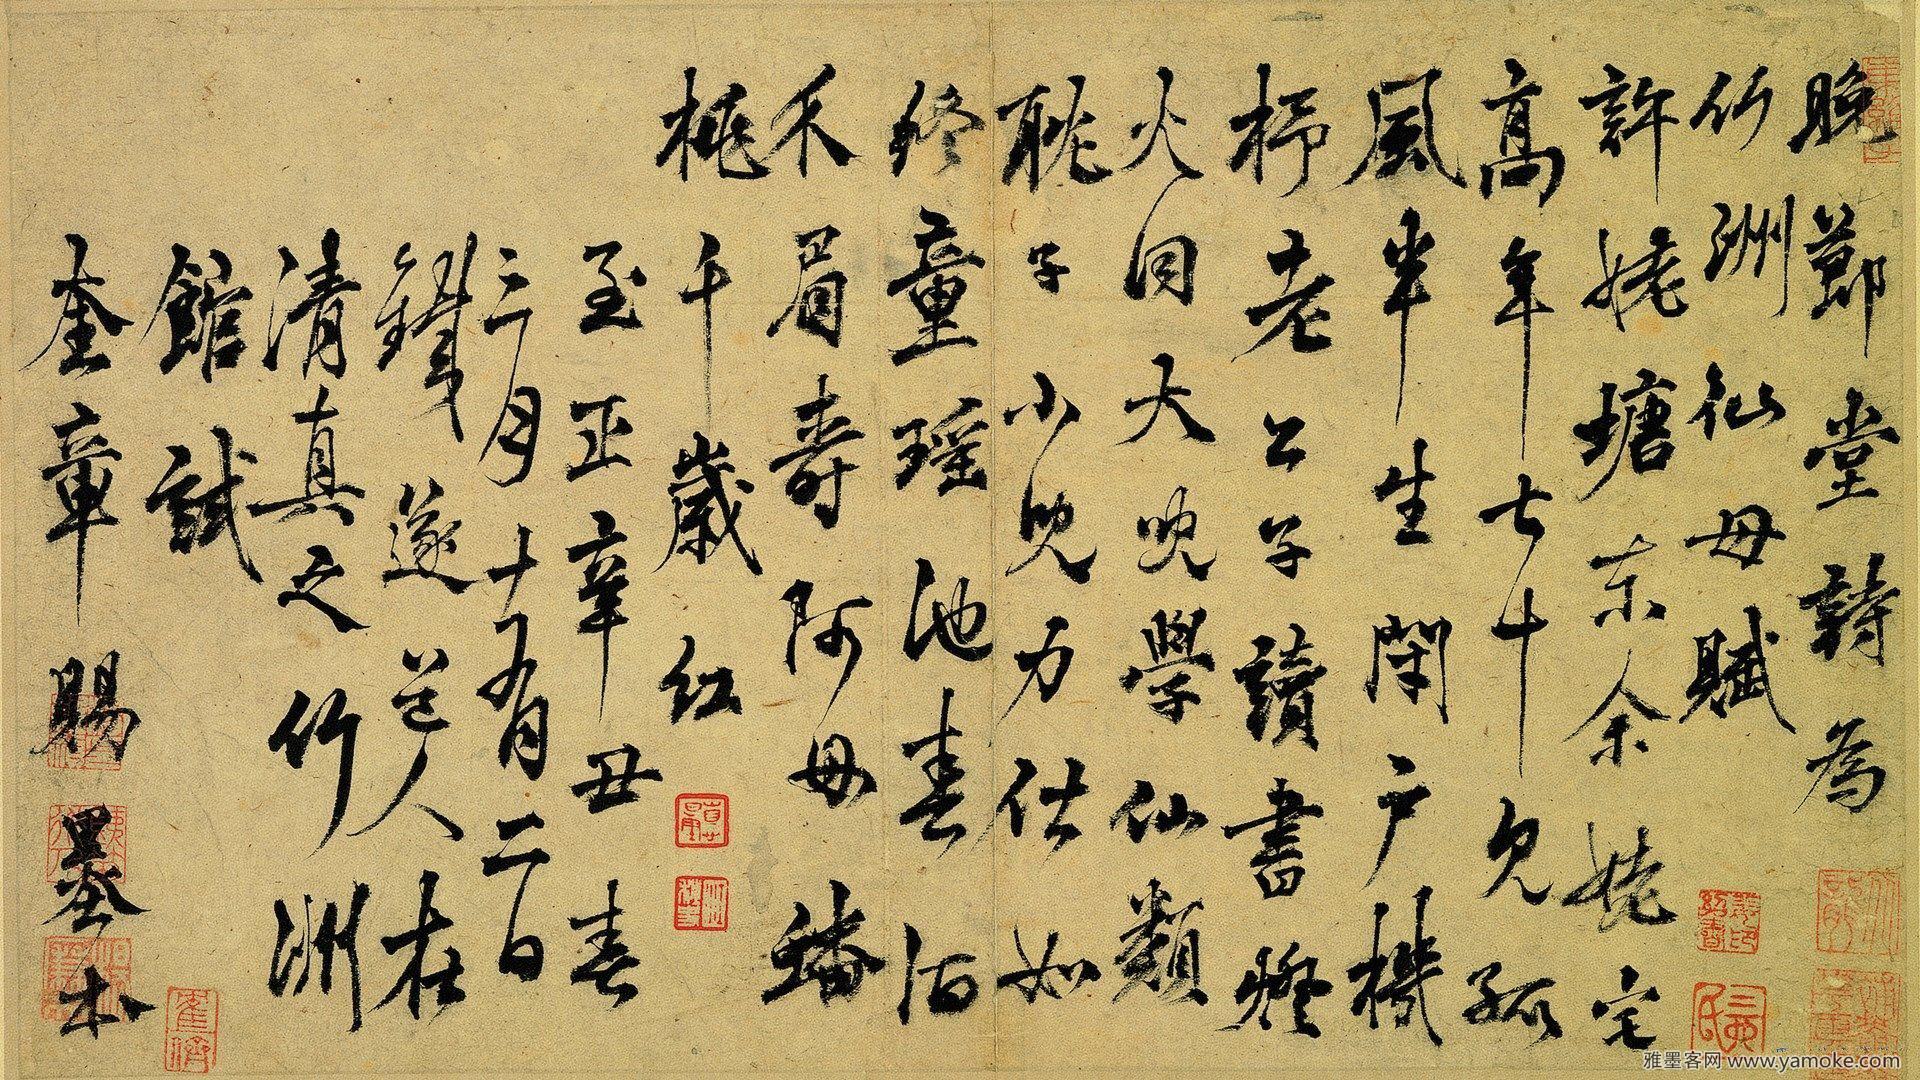 晚節堂詩為
竹洲仙母賦
許姥塘東余姥宅
高年七十見孤
風半生閉戶機
杼老公子讀書燈
火同大兒學仙類
耽子小兒力仕如
終童瑤池春酒
介眉壽阿母蟠
桃千歲紅
至正辛丑春
三月十有二日
鐵篴道人在
清真之竹洲
館試
奎章賜墨本
雅墨客网 www.yamoke.com